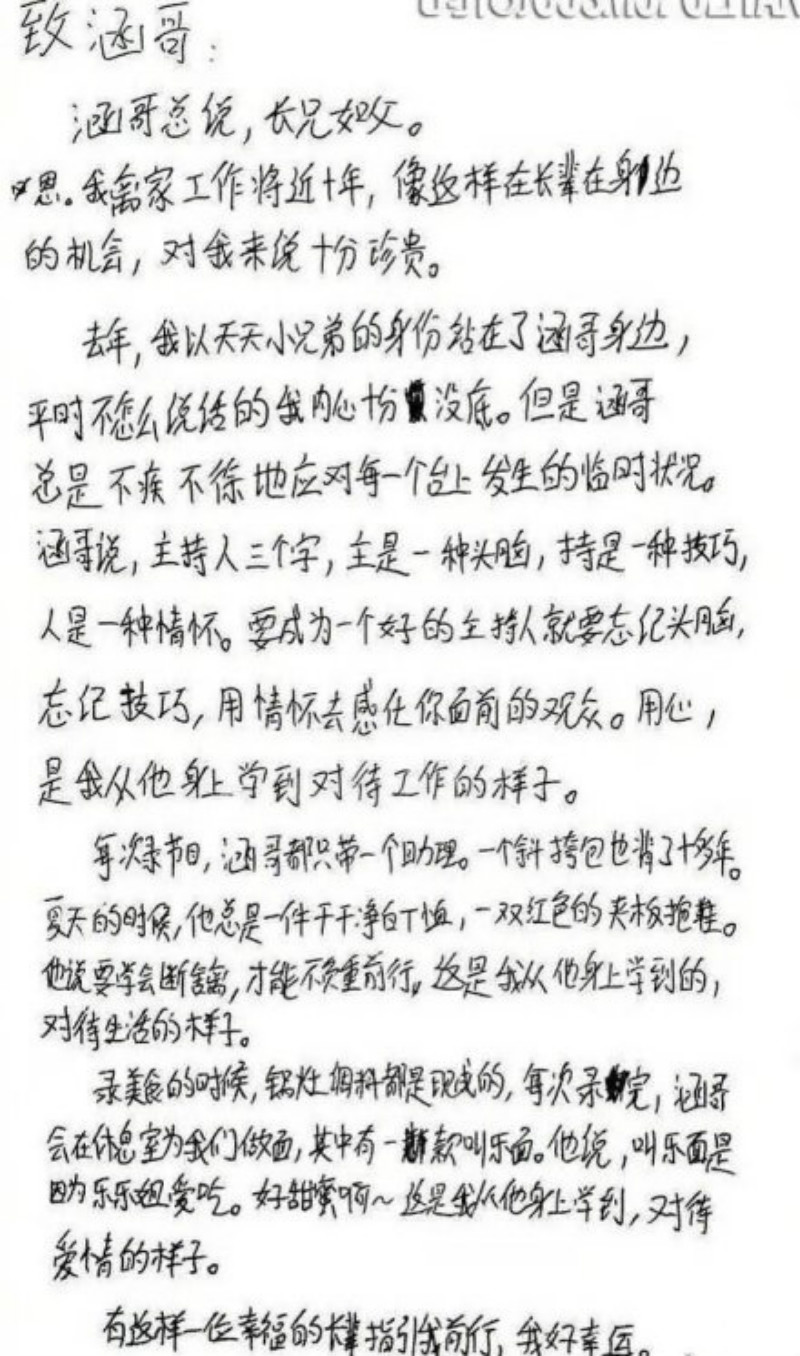 致涵哥:
涵哥总说,长兄如父。
恩。我离家工作将近十年,像这样在长辈在身边
的机会,对我来说十分珍贵。
去年,我以天天小兄弟的身份站在了涵哥身边,
平时不怎么说话的我内心十份没底。但是涵哥
总是不疾不徐地应对每一个台上发生的临时状况。
涵哥说,主持人三个字,主是一种头脑,持是一种技巧,
人是一种情怀。要成为一个好的主持人就要忘记头脑,
忘记技巧,用情怀去感任你面前的观众。用心,
是我从他身上学到对待工作的样子。
每次录节目,涵哥都只带一个助理。一个斜挎包也背了十多年。
夏天的时候,他总是一件干干净白T恤,一双红色的夹板拖鞋。
他说要学会断舍离,才能不负重前行。这是我从他身上学到的,
对待生活的样子。
录美食的时候,锅灶调料都是现成的,每次录完,涵哥
会在休息室为我们做面,其中有一款叫乐面。他说,叫乐面是
因为乐乐姐爱吃。好甜蜜啊~这是我从他身上学到,对待
爱情的样子。
有这样一位幸福的长辈指引我前行,我好幸运。